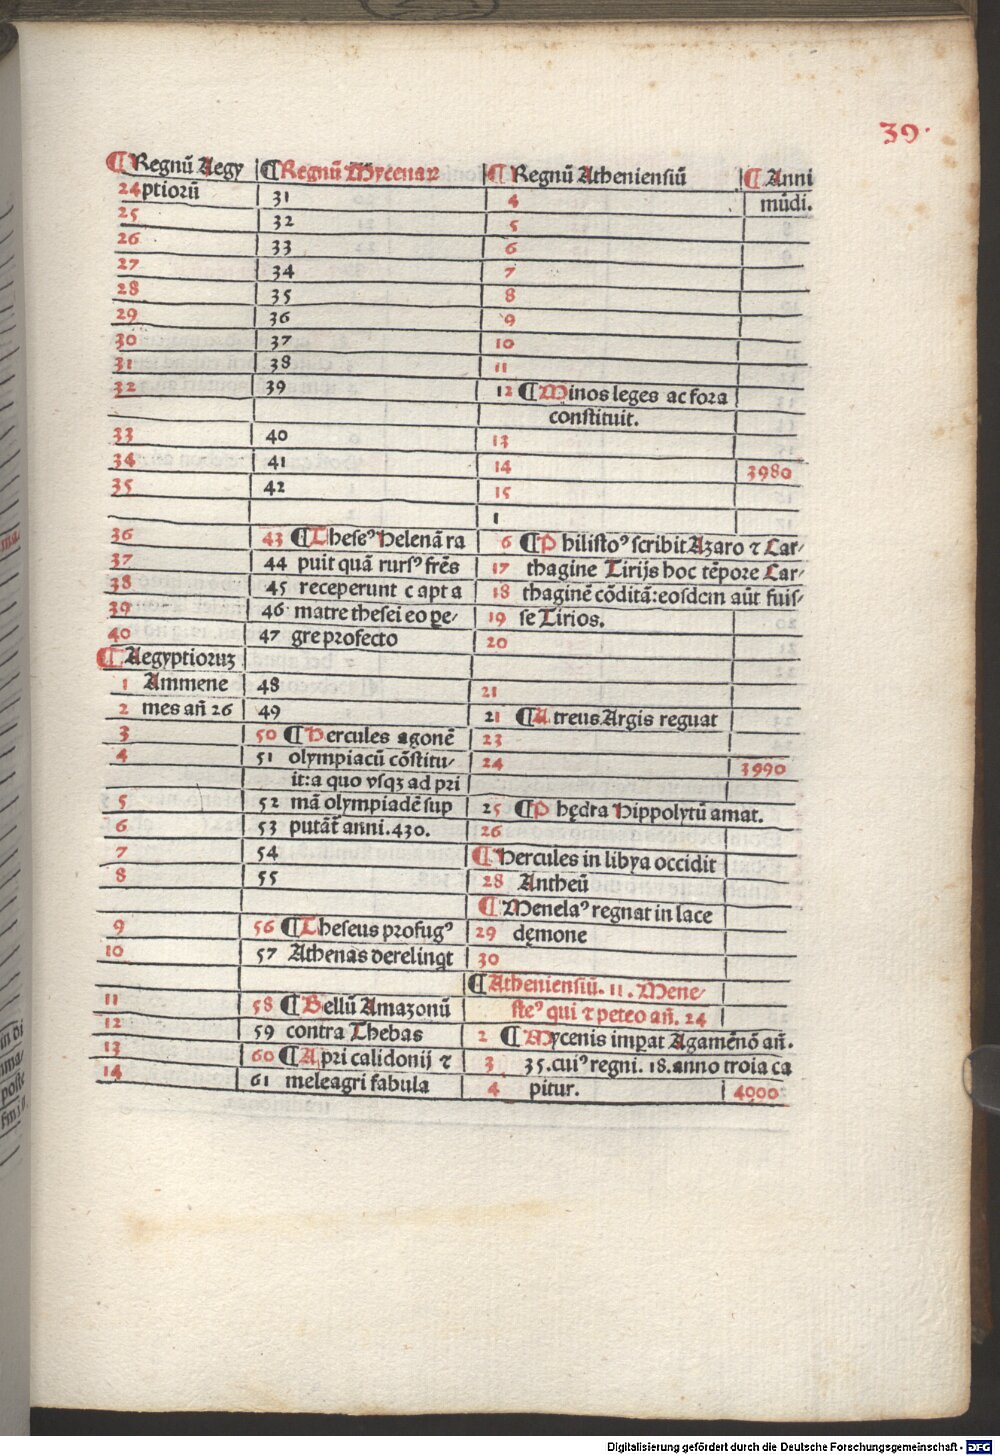 39.
¶ Regnū Aegy ¶ Regnū Mycenaꝝ ¶ Regnū Atheniensiū ¶ Anni
24 ptiorū 31 4 mūdi.
25 32 5
26 33 6
27 34 7
28 35 8
29 36 9
30 37 10
31 38 11
32 39 12 ¶ Minos leges ac fora
constituit.
33 40 13
34 41 14 3980
35 42 15
1
36 43 ¶ Theseꝰ Helenā ra 6 ¶ Philistoꝰ scribit Azaro ⁊ Car-
37 44 puit quā rursꝰ frēs 17 thagine Tirijs hoc tēpore Car-
38 45 receperunt capta 18 thaginē cōditā: eosdem aūt fuis-
39 46 matre thesei eo ꝑe- 19 se Tirios.
40 47 gre profecto 20
¶ Aegyptioruꝫ
1 Ammene 48 21
2 mes añ 26 49 21 ¶ Atreus Argis reguat
3 50 ¶ Hercules agonē 23
4 51 olympiacū cōstitu- 24 3990
it: a quo vsqꝫ ad pri
5 52 mā olympiadē sup 25 ¶ Phędra Hippolytū amat.
6 53 putāt̄ anni. 430. 26
7 54 ¶ Hercules in libya occidit
8 55 28 Antheū
¶ Menelaꝰ regnat in lace
9 56 ¶ Theseus profugꝰ 29 dęmone
10 57 Athenas derelinqt 30
¶ Atheniensiū. 11. Mene-
11 58 ¶ Bellū Amazonū steꝰ qui ⁊ peteo añ. 24
12 59 contra Thebas 2 ¶ Mycenis imꝑat Agamēnō añ.
13 60 ¶ Apri calidonij ⁊ 3 35. cuiꝰ regni. 18. anno troia ca
14 61 meleagri fabula 4 pitur. 4000
Digitalisierung gefördert durch die Deutsche Forschungsgemeinschaft - DFG